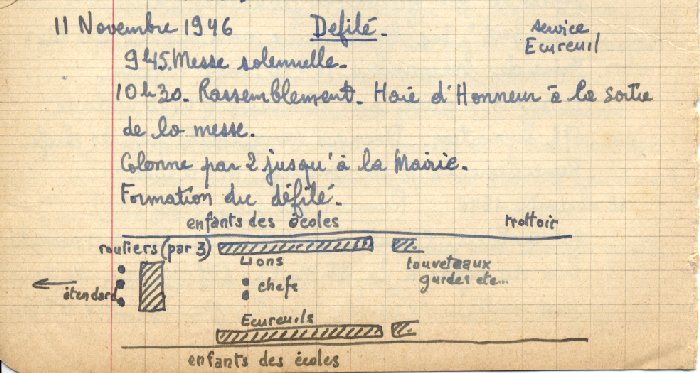 11 Novembre 1946 Défilé. service
Ecureuil
9h45. Messe solennelle.
10h30. Rassemblement. Haie d'Honneur à la sortie
de la messe.
Colonne par 2 jusqu'à la Mairie.
Formation du défilé.
enfants des écoles trottoir
routiers (par 3)
Lions
louveteaux
guides etc...
étendard
chefs
Ecureuils
enfants des écoles